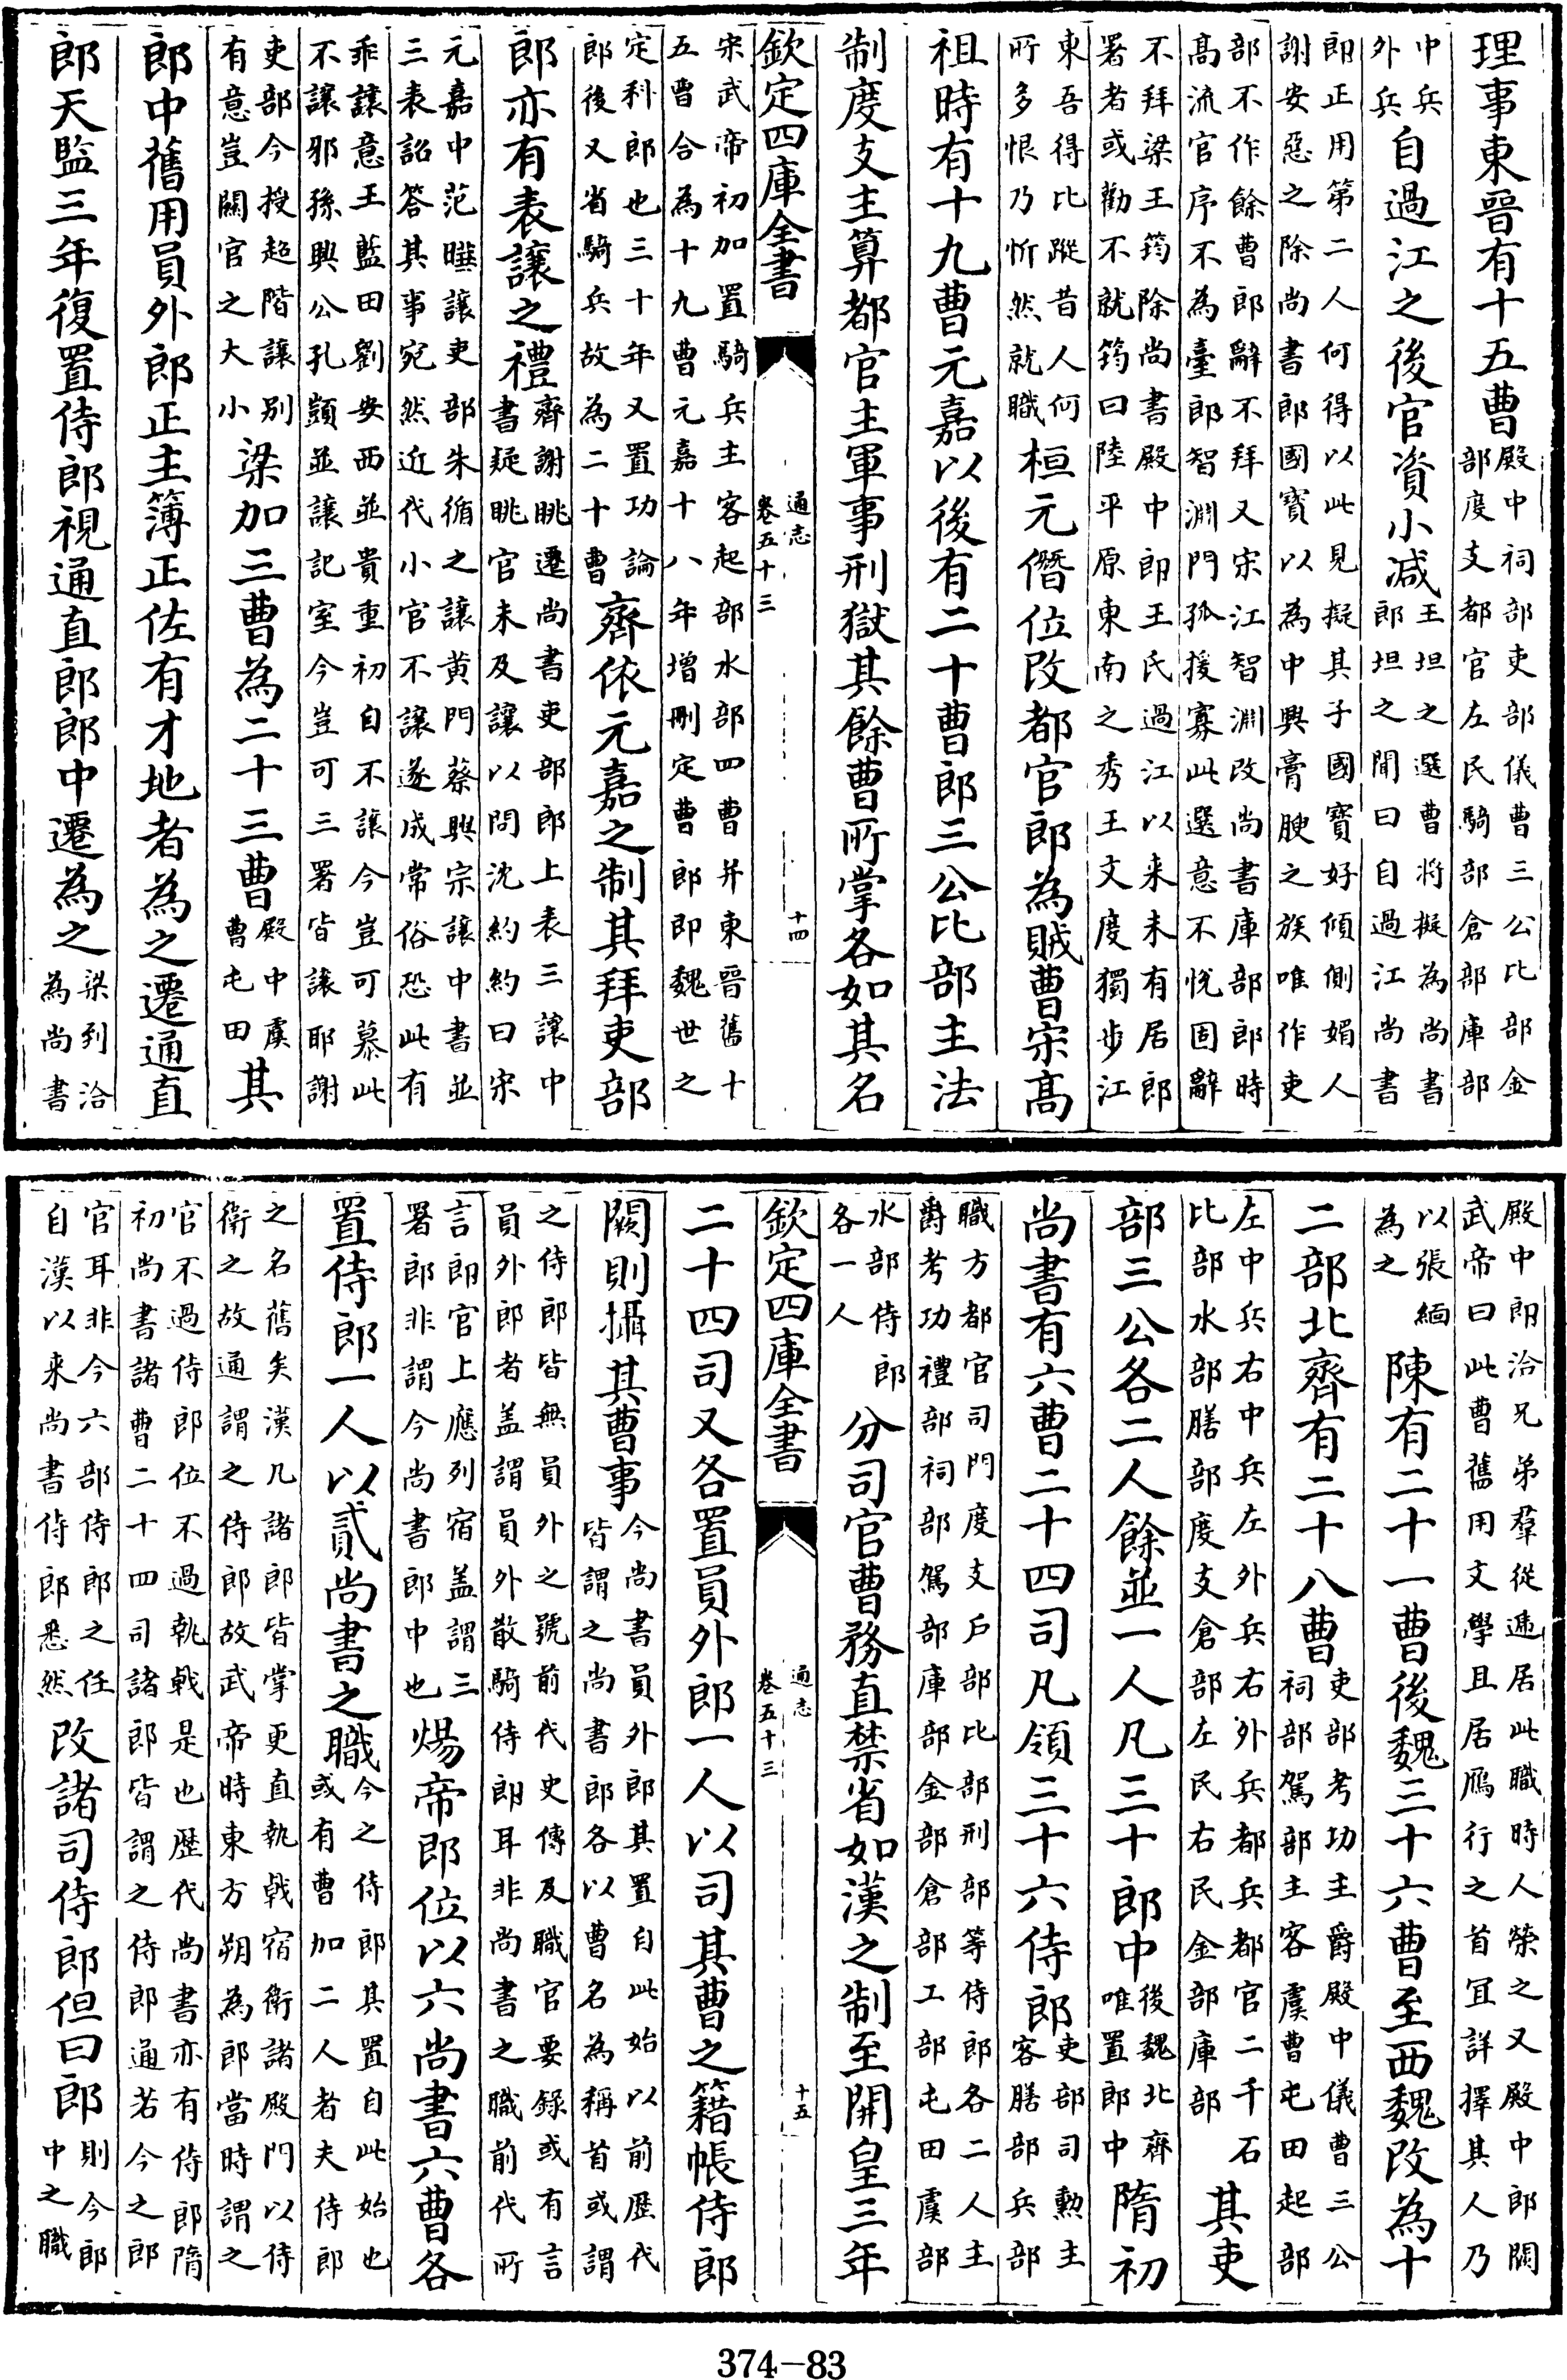 理事東晉有十五曹殿中祠部吏部儀曹三公比部金
部度支都官左民騎部倉部庫部
中兵
外兵自過江之後官資小减王坦之選曹將擬為尚書
郎坦之聞曰自過江尚書
郎正用第二人何得以此見擬其子國寳好傾側媚人
謝安惡之除尚書郎國寳以為中興膏腴之族唯作吏
部不作餘曹郎辭不拜又宋江智淵改尚書庫部郎時
髙流官序不為臺郎智淵門孤援寡此選意不悦固辭
不拜梁王筠除尚書殿中郎王氏過江以来未有居郎
署者或勸不就筠曰陸平原東南之秀王文度獨步江
東吾得比蹤昔人何
所多恨乃忻然就職桓元僭位改都官郎為賊曹宋髙
祖時有十九曹元嘉以後有二十曹郎三公比部主法
制度支主算都官主軍事刑獄其餘曹所掌各如其名
欽定四庫全書
通志
卷五十三
十四
宋武帝初加置騎兵主客起部水部四曹并東晉舊十
五曹合為十九曹元嘉十八年增刪定曹郎即魏世之
定科郎也三十年又置功論
郎後又省騎兵故為二十曹齊依元嘉之制其拜吏部
郎亦有表讓之禮齊謝朓遷尚書吏部郎上表三讓中
書疑朓官未及讓以問沈約約曰宋
元嘉中范曄讓吏部朱循之讓黄門蔡興宗讓中書並
三表詔答其事宛然近代小官不讓遂成常俗恐此有
乖讓意王藍田劉安西並貴重初自不讓今豈可慕此
不讓邪孫興公孔顗並讓記室今豈可三署皆讓耶謝
吏部今授超階讓别
有意豈闗官之大小梁加三曹為二十三曹殿中虞
曹屯田其
郎中舊用員外郎正主簿正佐有才地者為之遷通直
郎天監三年復置侍郎視通直郎郎中遷為之梁到洽
為尚書
殿中郎洽兄弟羣從遞居此職時人榮之又殿中郎闕
武帝曰此曹舊用文學且居鴈行之首冝詳擇其人乃
以張緬
為之陳有二十一曹後魏三十六曹至西魏改為十
二部北齊有二十八曹吏部考功主爵殿中儀曹三公
祠部駕部主客虞曹屯田起部
左中兵右中兵左外兵右外兵都兵都官二千石
比部水部膳部度支倉部左民右民金部庫部其吏
部三公各二人餘並一人凡三十郎中後魏北齊
唯置郎中隋初
尚書有六曹二十四司凡領三十六侍郎吏部司勲主
客膳部兵部
職方都官司門度支戶部比部刑部等侍郎各二人主
爵考功禮部祠部駕部庫部金部倉部工部屯田虞部
水部侍郎
各一人分司官曹務直禁省如漢之制至開皇三年
欽定四庫全書
通志
卷五十三
十五
二十四司又各置員外郎一人以司其曹之籍帳侍郎
闕則攝其曹事今尚書員外郎其置自此始以前歴代
皆謂之尚書郎各以曹名為稱首或謂
之侍郎皆無員外之號前代史傳及職官要録或有言
員外郎者盖謂員外散騎侍郎耳非尚書之職前代所
言郎官上應列宿盖謂三
署郎非謂今尚書郎中也煬帝即位以六尚書六曹各
置侍郎一人以貳尚書之職今之侍郎其置自此始也
或有曹加二人者夫侍郎
之名舊矣漢凡諸郎皆掌更直執戟宿衛諸殿門以侍
衛之故通謂之侍郎故武帝時東方朔為郎當時謂之
官不過侍郎位不過執戟是也歴代尚書亦有侍郎隋
初尚書諸曹二十四司諸郎皆謂之侍郎通若今之郎
官耳非今六部侍郎之任
自漢以来尚書侍郎悉然改諸司侍郎但曰郎則今郎
中之職